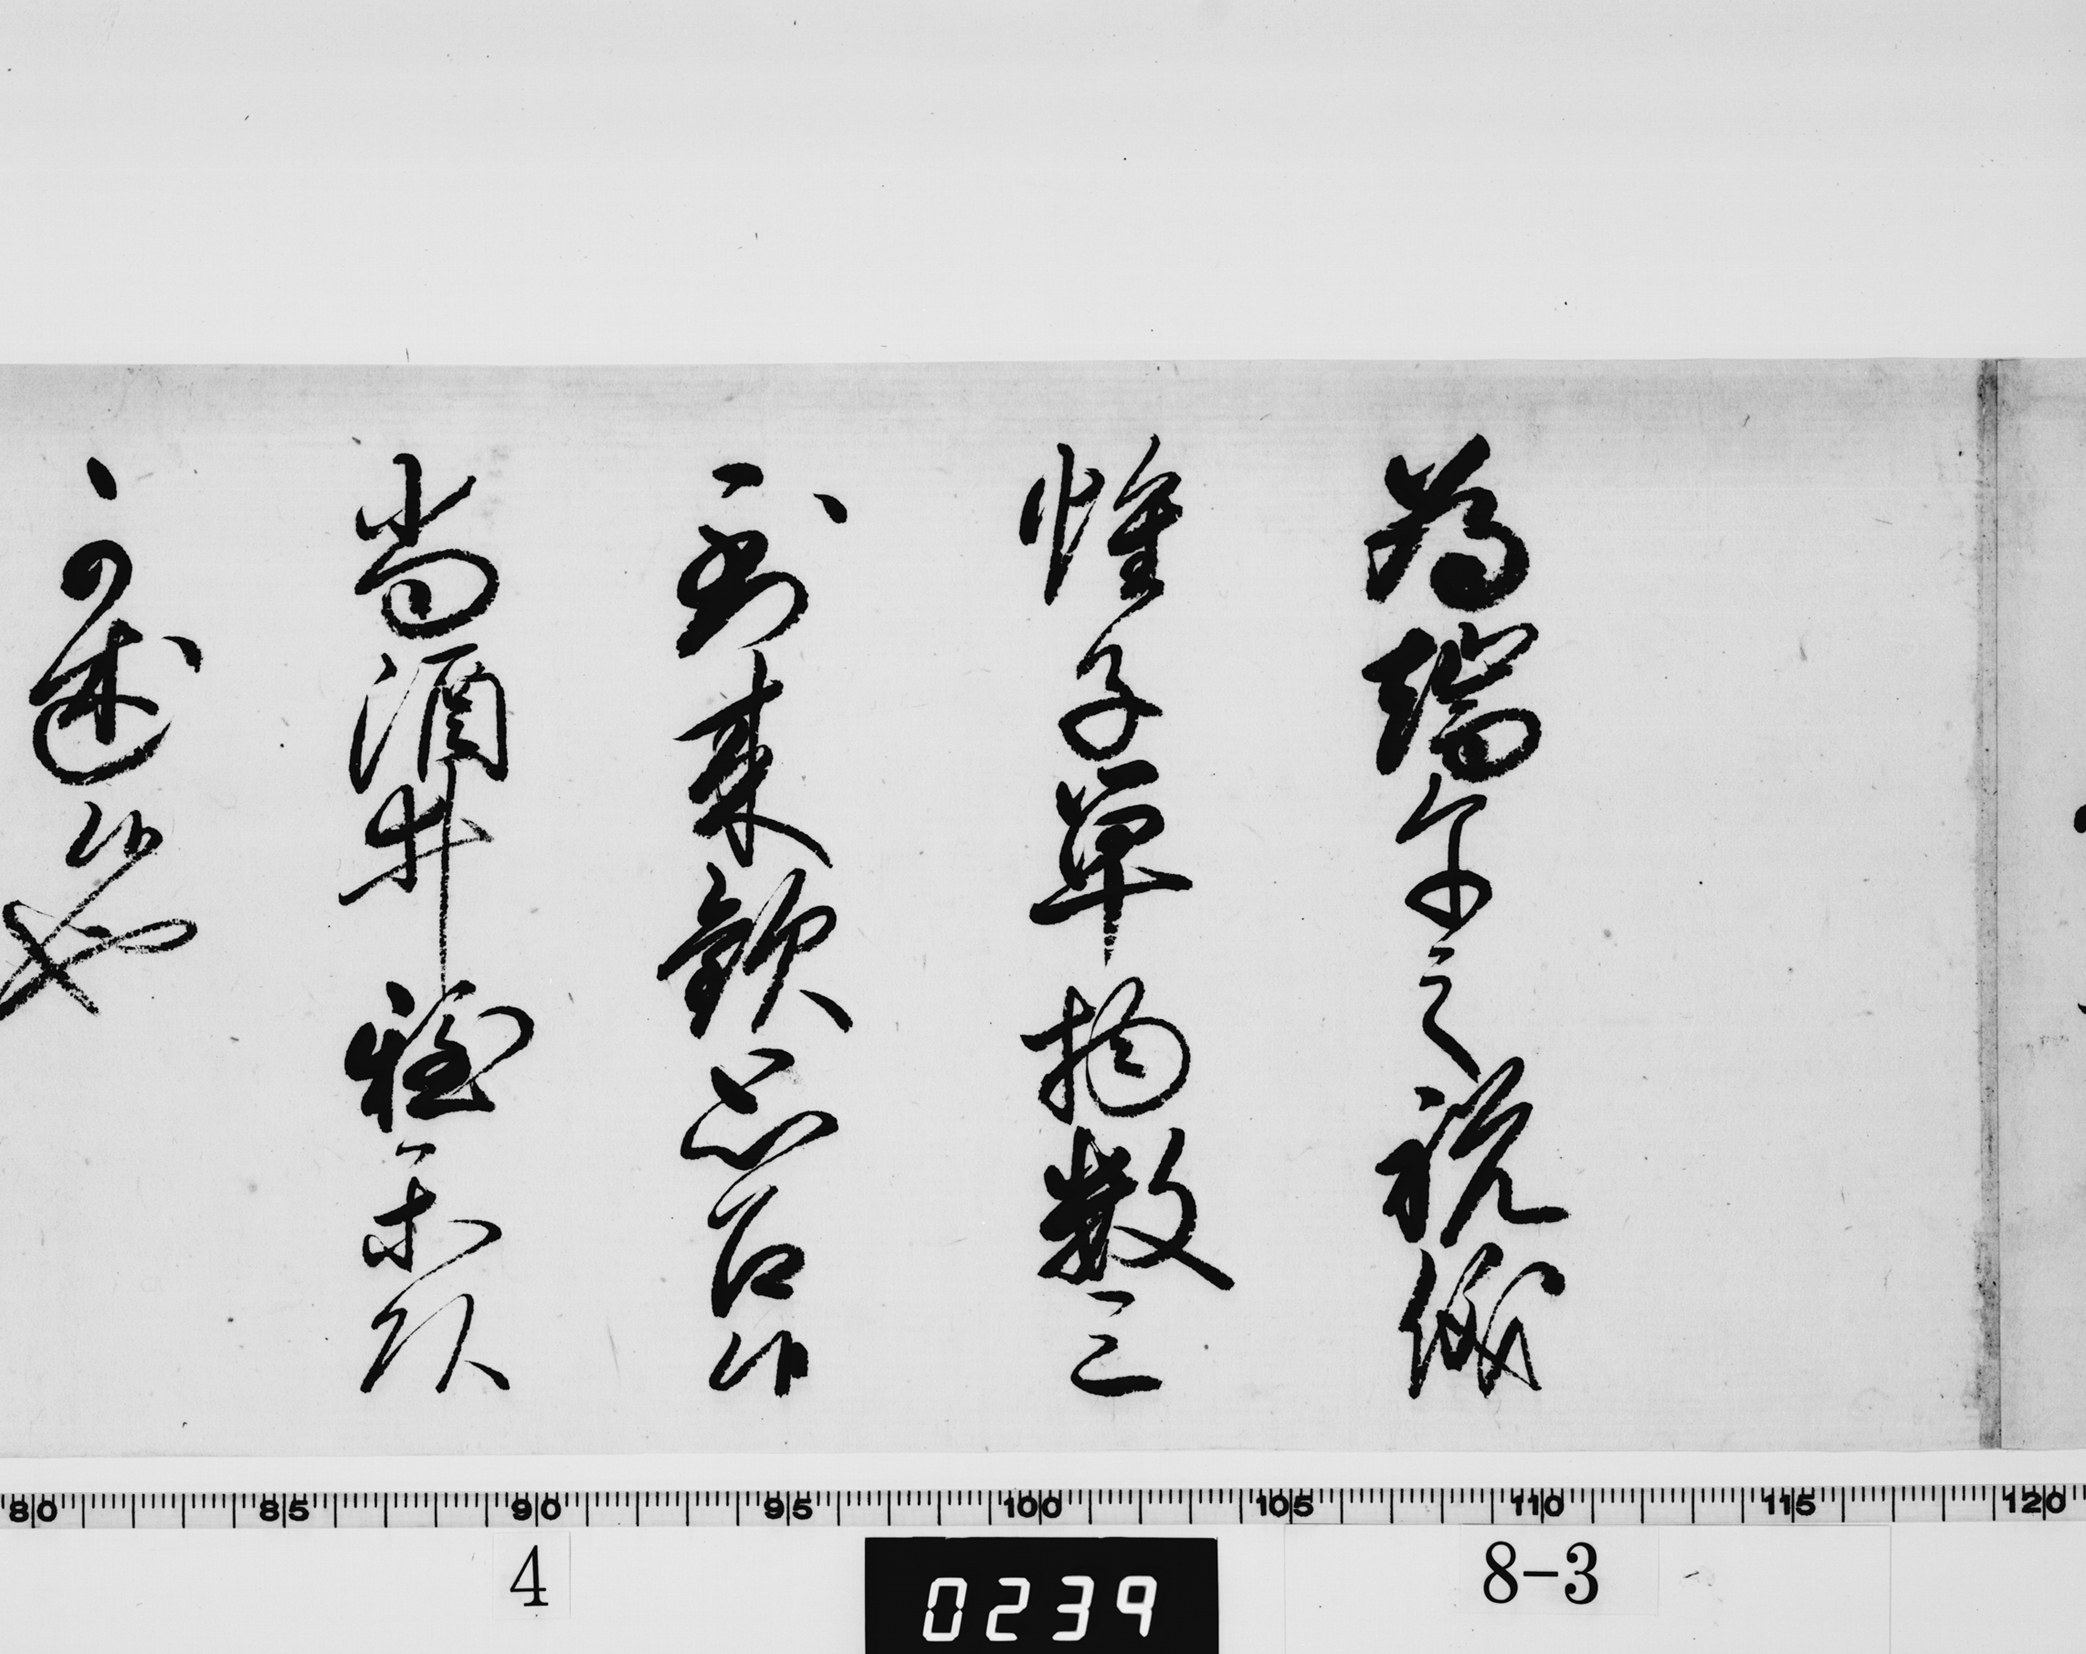 為端午之祝儀
帷子単物数三
到来歓思召候
尚酒井雅楽頭
可述候也
80 85 90 95 100 105 110 115 120
4
0239
8-3